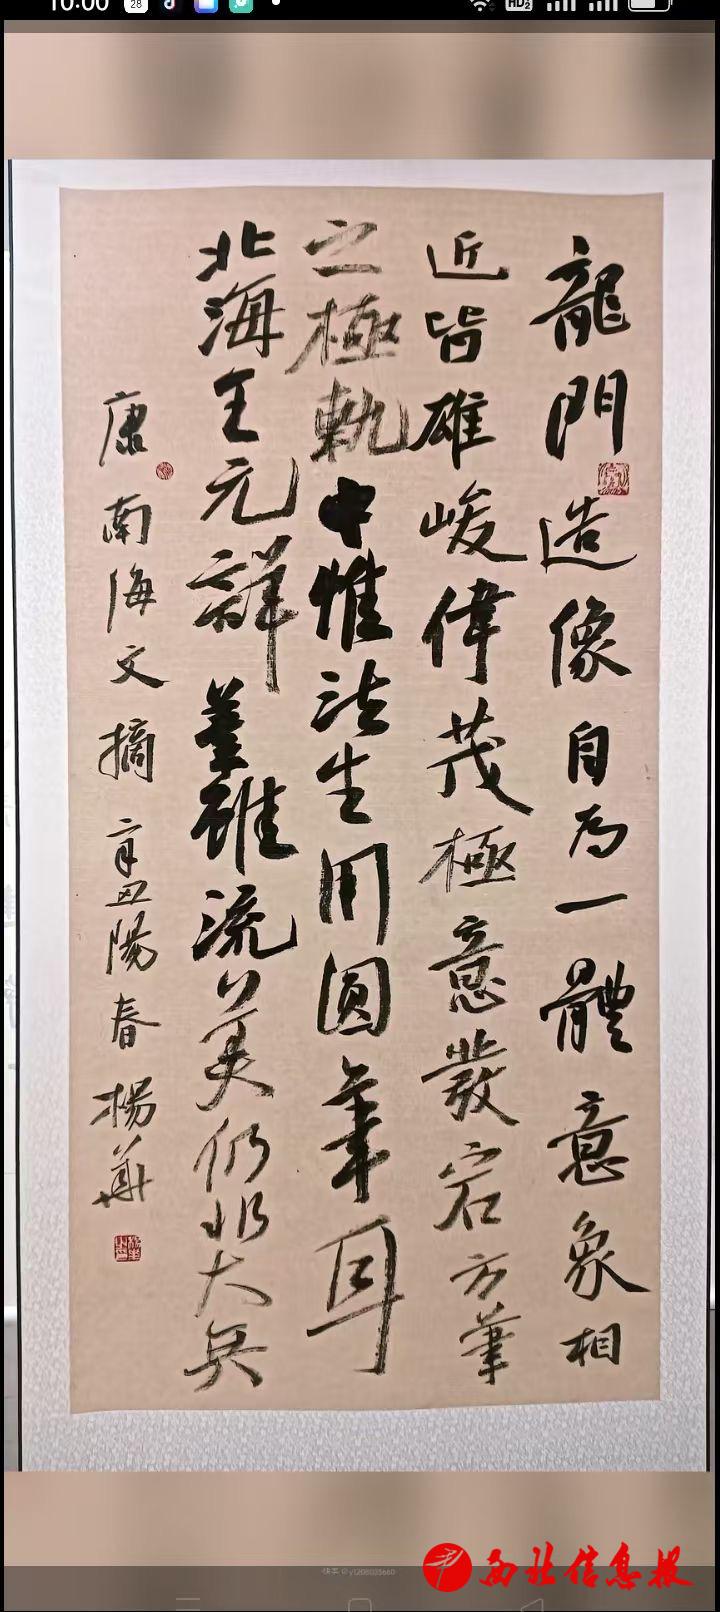 10:00
28
HD2
龍門造像自為一體意象相
近皆雄峻偉茂極意發宕方筆
之極軌中惟法生用圓筆耳
北海王元詳善雖流美仍非大異
康南海文摘辛丑陽春楊華
快手 @y1208035660
西北信息报